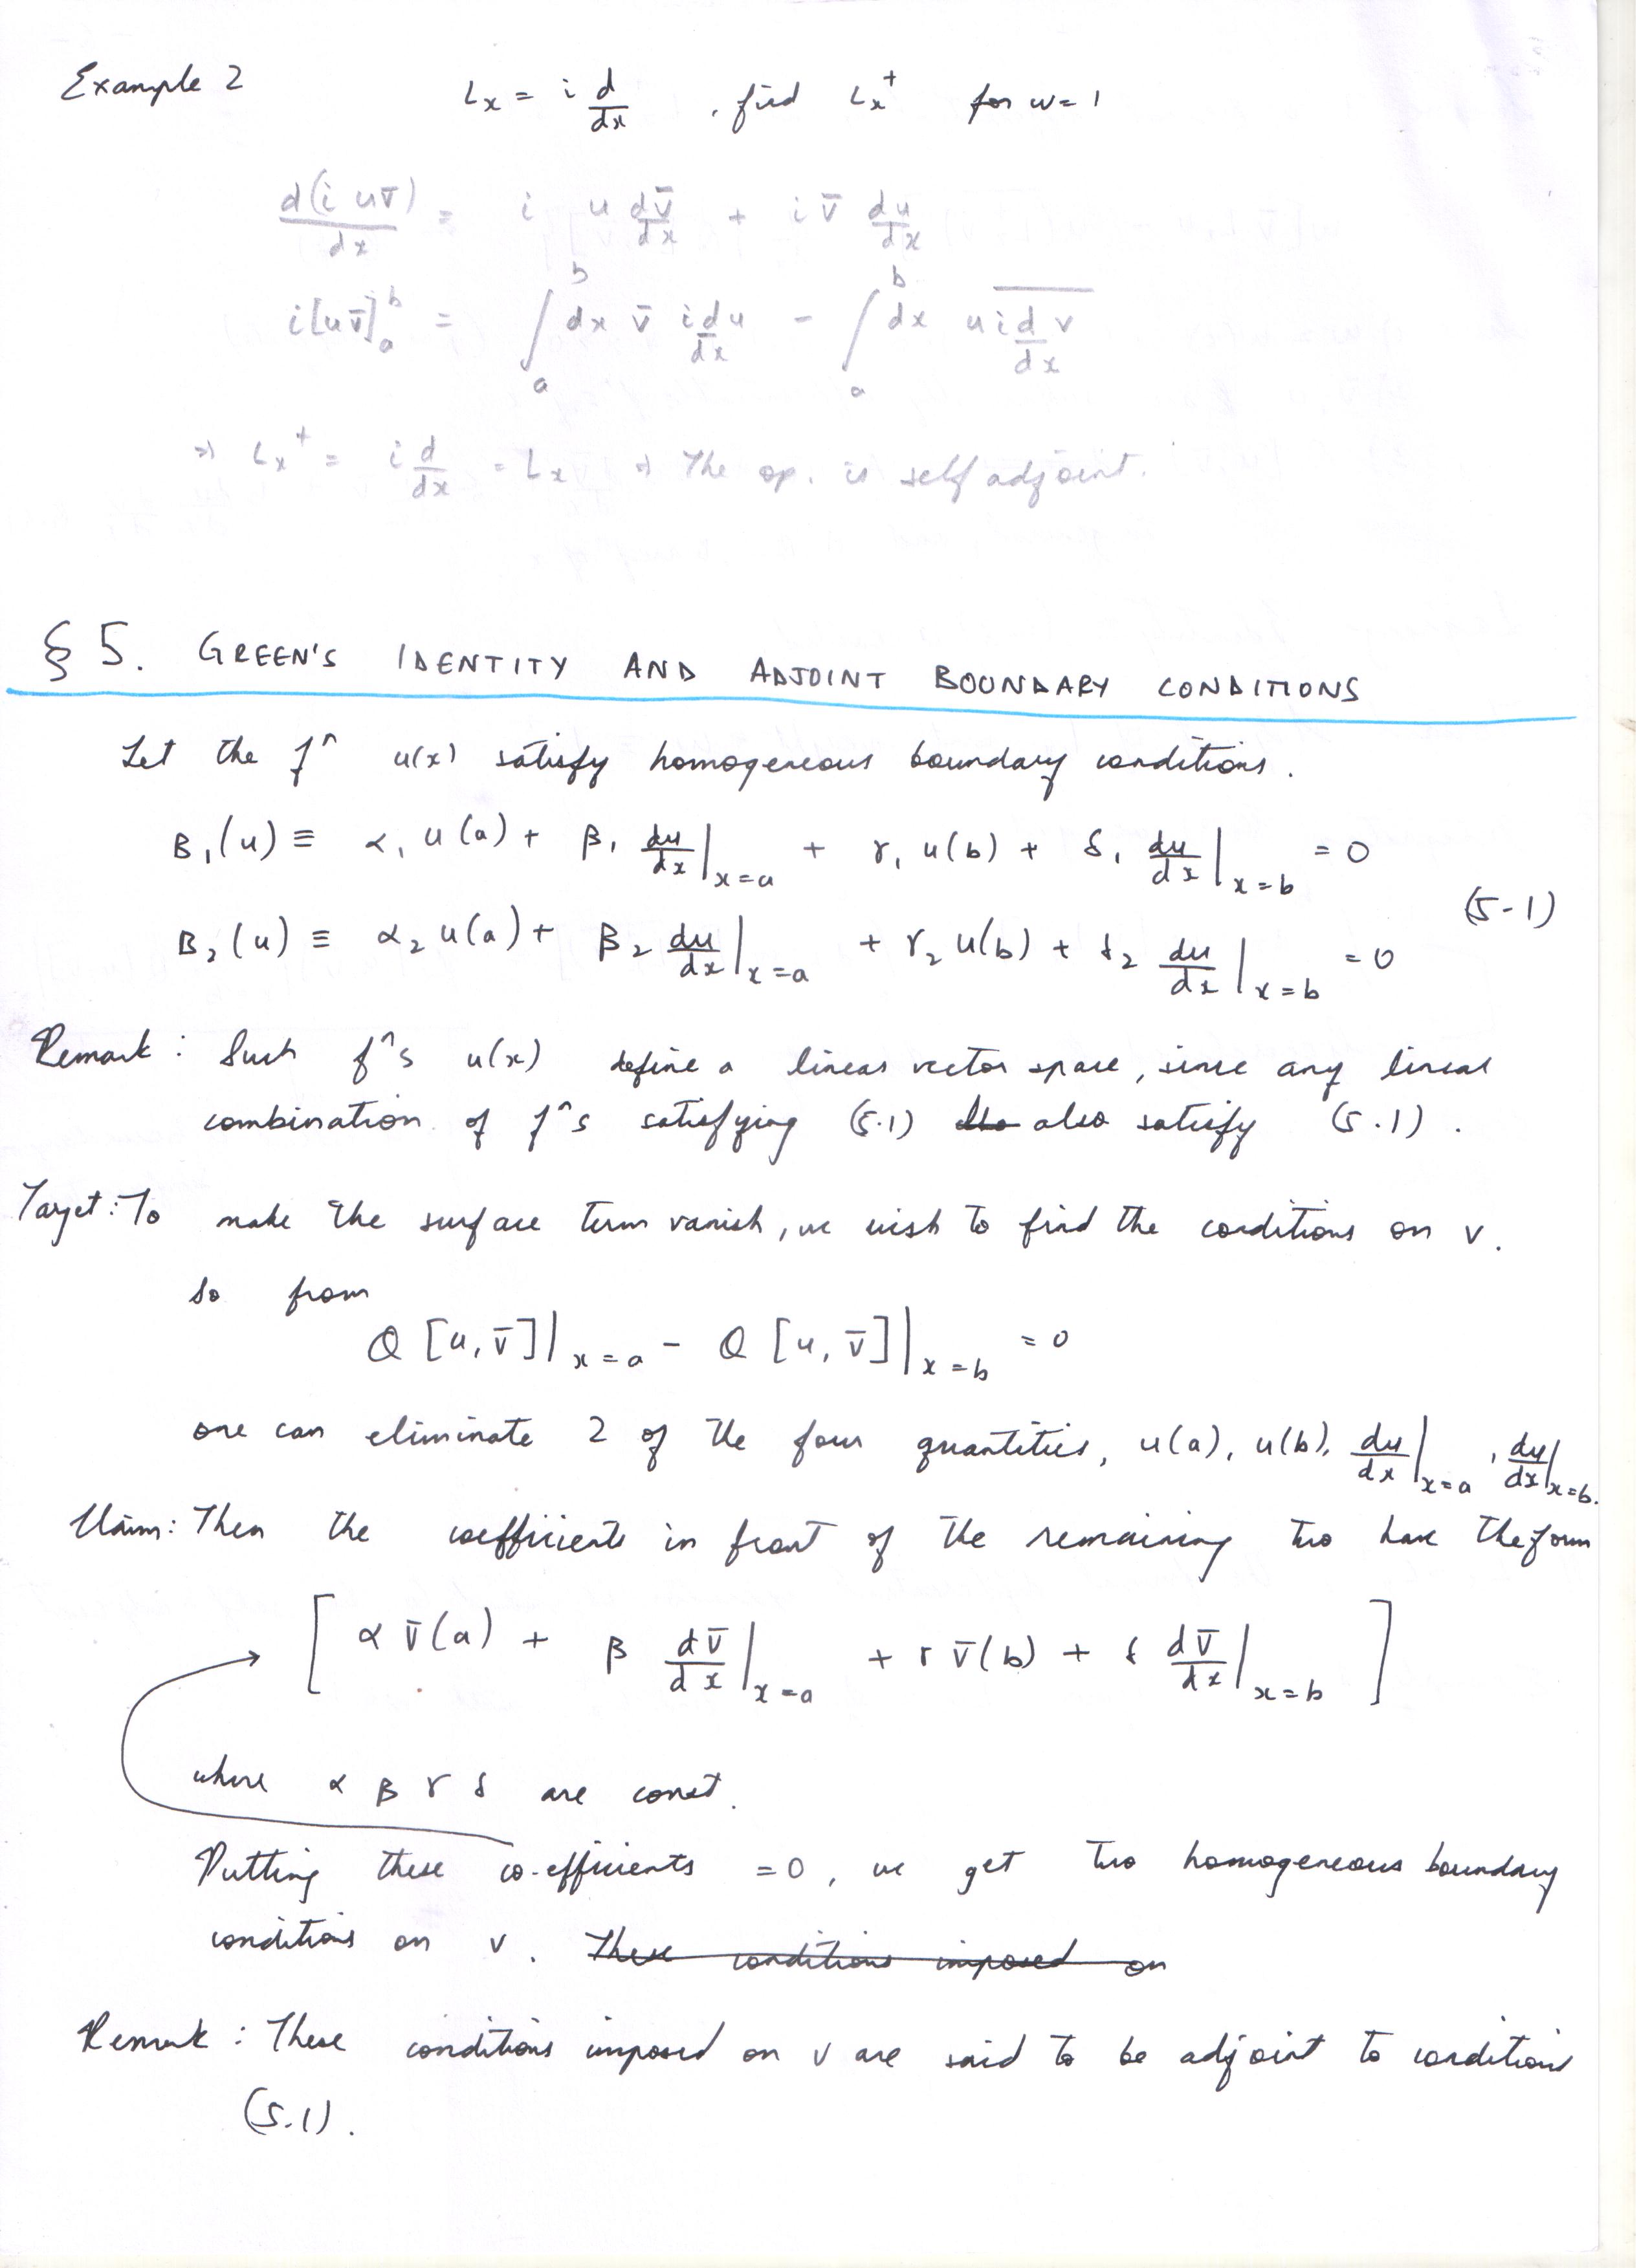 Example 2 Lx = i d/dx , find Lx⁺ for w=1
d(i uv̄)/dx = i u dv̄/dx + i v̄ du/dx
i[uv̄]ₐᵇ = ∫ₐᵇ dx v̄ i du/dx - ∫ₐᵇ dx u \overline{i d/dx v}
⇒ Lx⁺ = i d/dx = Lx ⇒ The op. is self adjoint.
§ 5. GREEN'S IDENTITY AND ADJOINT BOUNDARY CONDITIONS
Let the fⁿ u(x) satisfy homogeneous boundary conditions.
B₁(u) ≡ α₁ u(a) + β₁ du/dx|x=a + γ₁ u(b) + δ₁ du/dx|x=b = 0
(5-1)
B₂(u) ≡ α₂ u(a) + β₂ du/dx|x=a + γ₂ u(b) + δ₂ du/dx|x=b = 0
Remark : Such fⁿs u(x) define a linear vector space, since any linear
combination of fⁿs satisfying (5.1) also satisfy (5.1) .
Target : To make the surface term vanish, we wish to find the conditions on v.
So from
Q [u, v̄]|x=a - Q [u, v̄]|x=b = 0
one can eliminate 2 of the four quantities, u(a), u(b), du/dx|x=a , du/dx|x=b.
Claim: Then the coefficients in front of the remaining two have the form
[ α v̄(a) + β dv̄/dx|x=a + γ v̄(b) + δ dv̄/dx|x=b ]
where α β γ δ are const.
Putting these co-efficients =0, we get two homogeneous boundary
conditions on v. These conditions imposed on
Remark : These conditions imposed on v are said to be adjoint to conditions
(5.1).